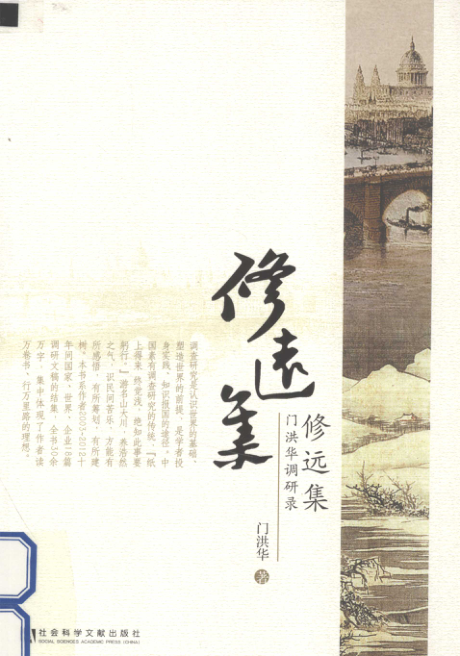 修远集
修远集
门洪华调研录
门洪华 著
调查研究是认识世界的基础、
塑造世界的前提，是学者投
身实践、知识报国的途径。中
国素有调查研究的传统，“纸
上得来终觉浅，绝知此事要
躬行。”游名山大川，养浩然
之气，识民间苦乐，方能有
所感悟、有所筹划、有所建
树。本书系作者2003-2012十
年间国家、世界、企业16篇
调研文稿的结集，全书30余
万字，集中体现了作者读
万卷书、行万里路的理想。
社会科学文献出版社
SOCIAL SCIENCES ACADEMIC PRESS (CHINA)